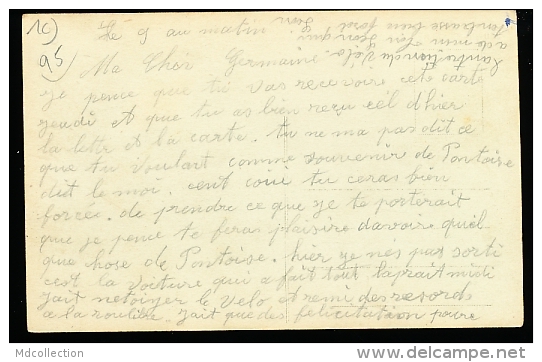 10)
95)
Lé 9 au matin
Ma Cher Germaine.
je pence que tu vas recevoire cete carte
jeudi et que tu as bien reçu cél d'hier
la lettr et la carte. tu ne ma pas dit ce
que tu voulait comme souvenir de Pontoise
dit le moi. cent tu ceras bien
forcée. de prendre ce que je te porterait
que je pence te feras plaisire davoire quél
que hose de Pontoise. hier je nés pas sorti
cést la voiture qui a fait tout lapraitmidi
jait netoiyer le velo et remi des resords
a la roulire. jait que des felicitation poure
Mdcollection
delcampe.net